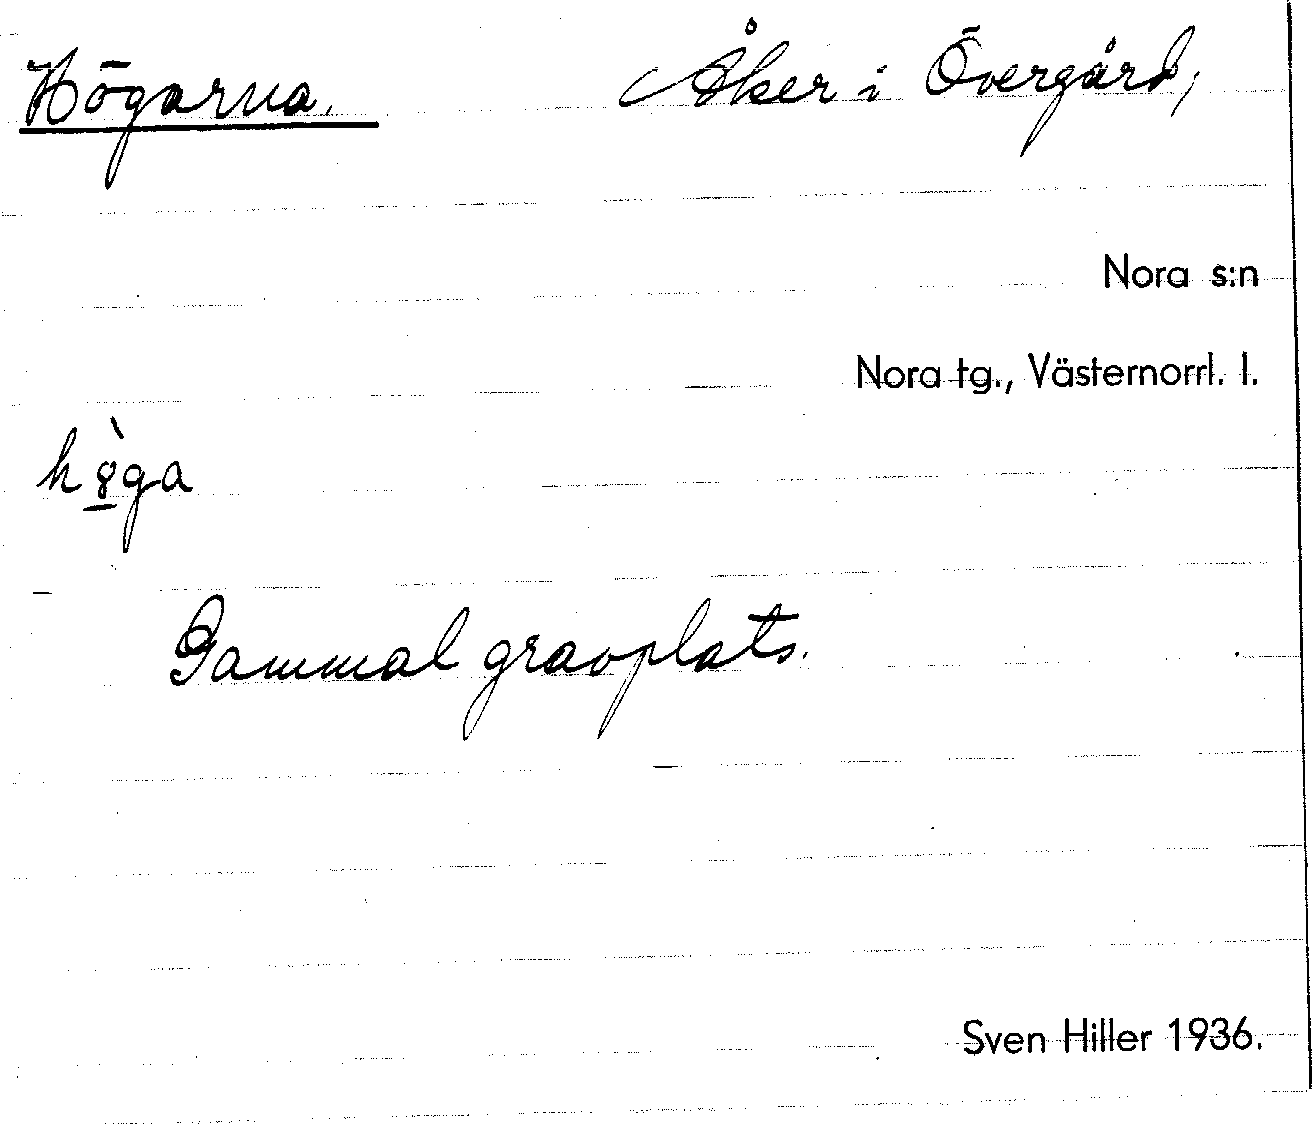 Högarna. Åker i Övergård,
Nora s:n
Nora tg., Västernorrl. l.
hȣ̱̀ga
Gammal gravplats.
Sven Hiller 1936.